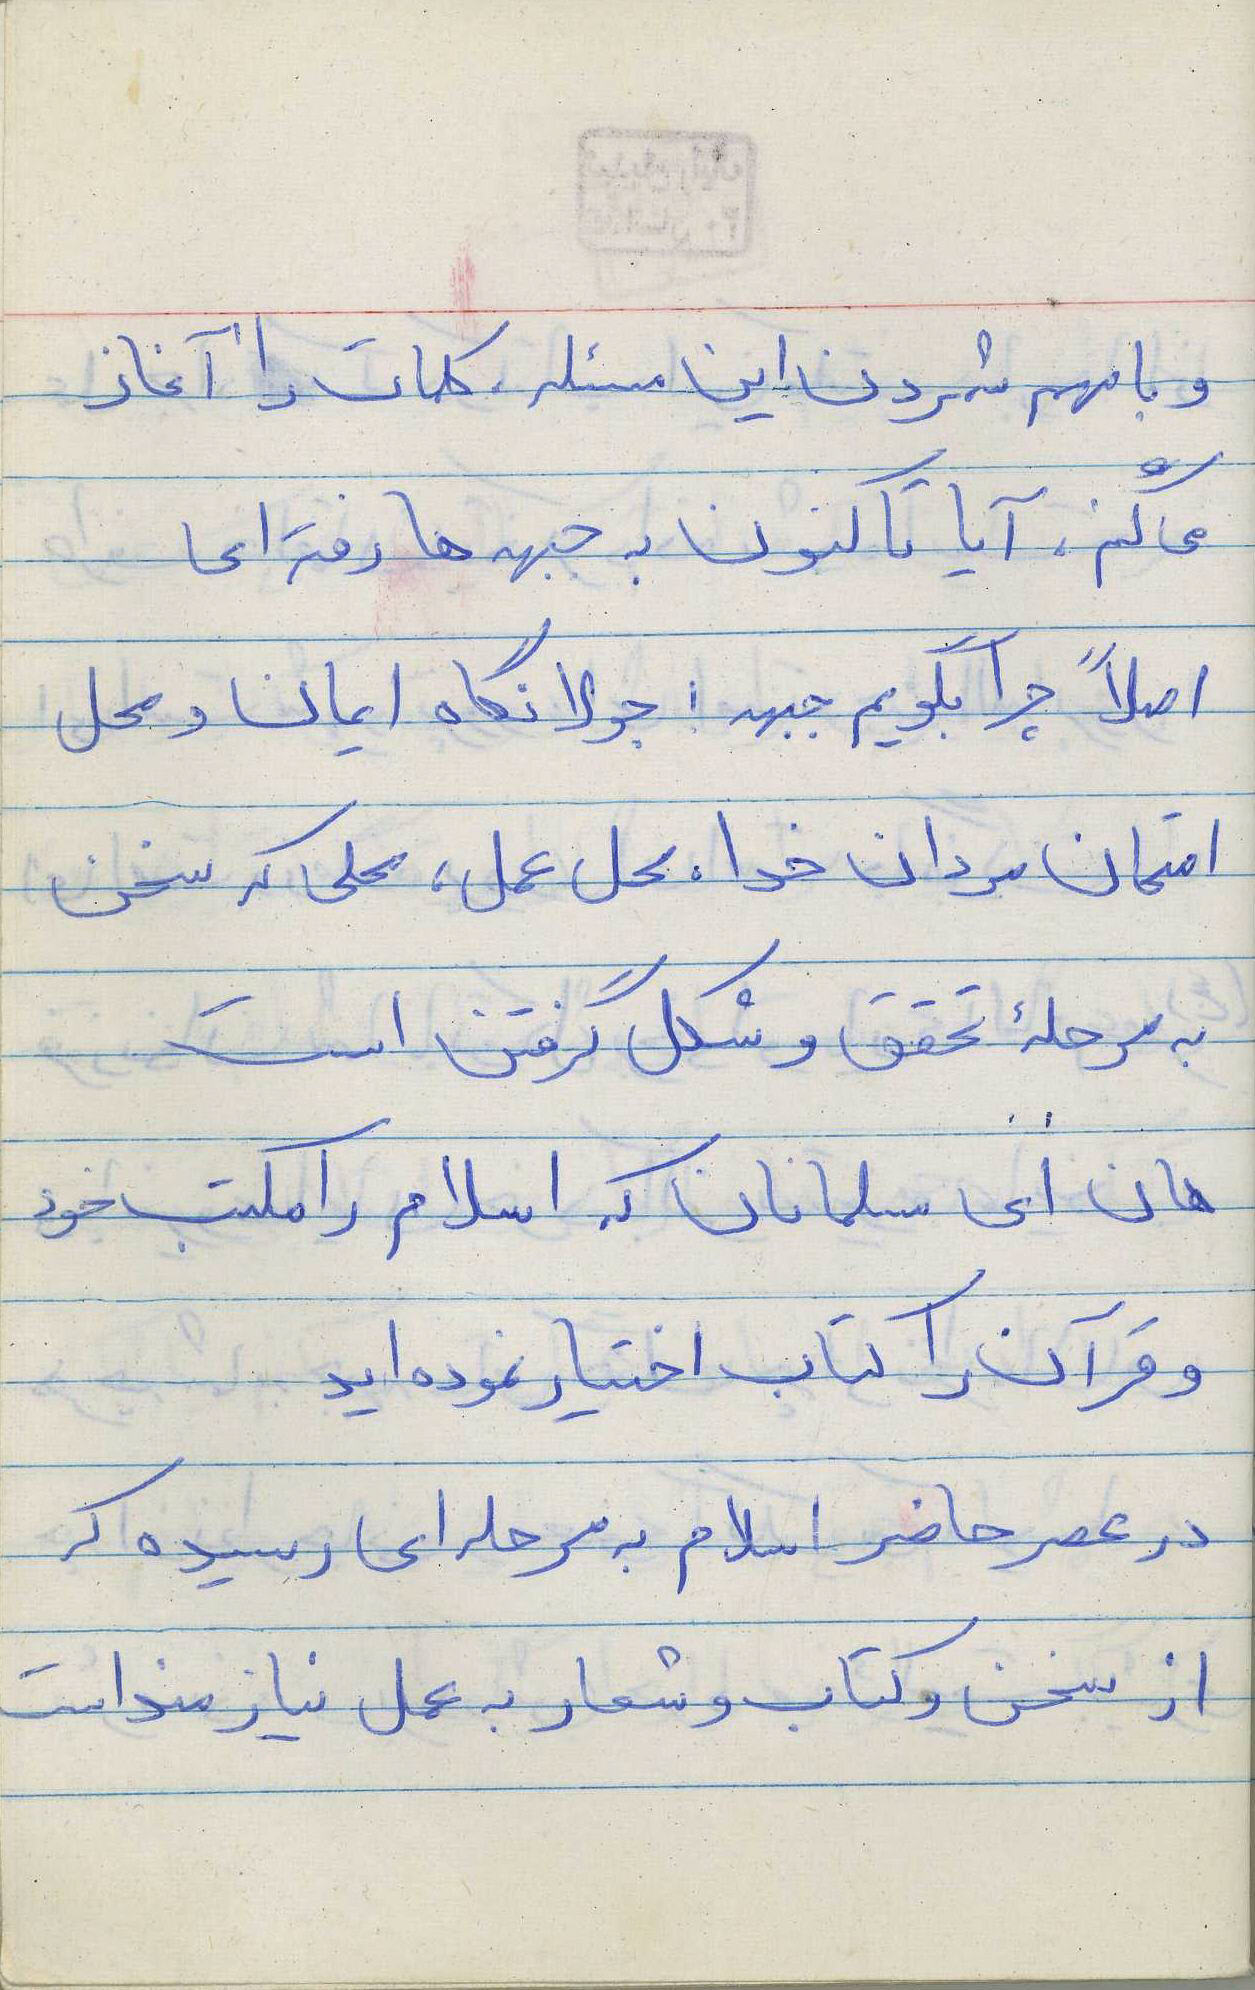 و با مهم شمردن این مسئله، کلمات را آغاز
می‌کنم، آیا تا کنون به جبهه ها رفته‌ای
اصلاً چرا بگویم جبهه! جولانگاه ایمان و محل
امتحان مردان خدا. محل عمل، محلی که سخن
به مرحلهٔ تحقق و شکل گرفتن است
هان ای مسلمانان که اسلام را مکتب خود
و قرآن را کتاب اختیار نموده‌اید
در عصر حاضر اسلام به مرحله‌ای رسیده که
از سخن و کتاب و شعار به عمل نیازمند است